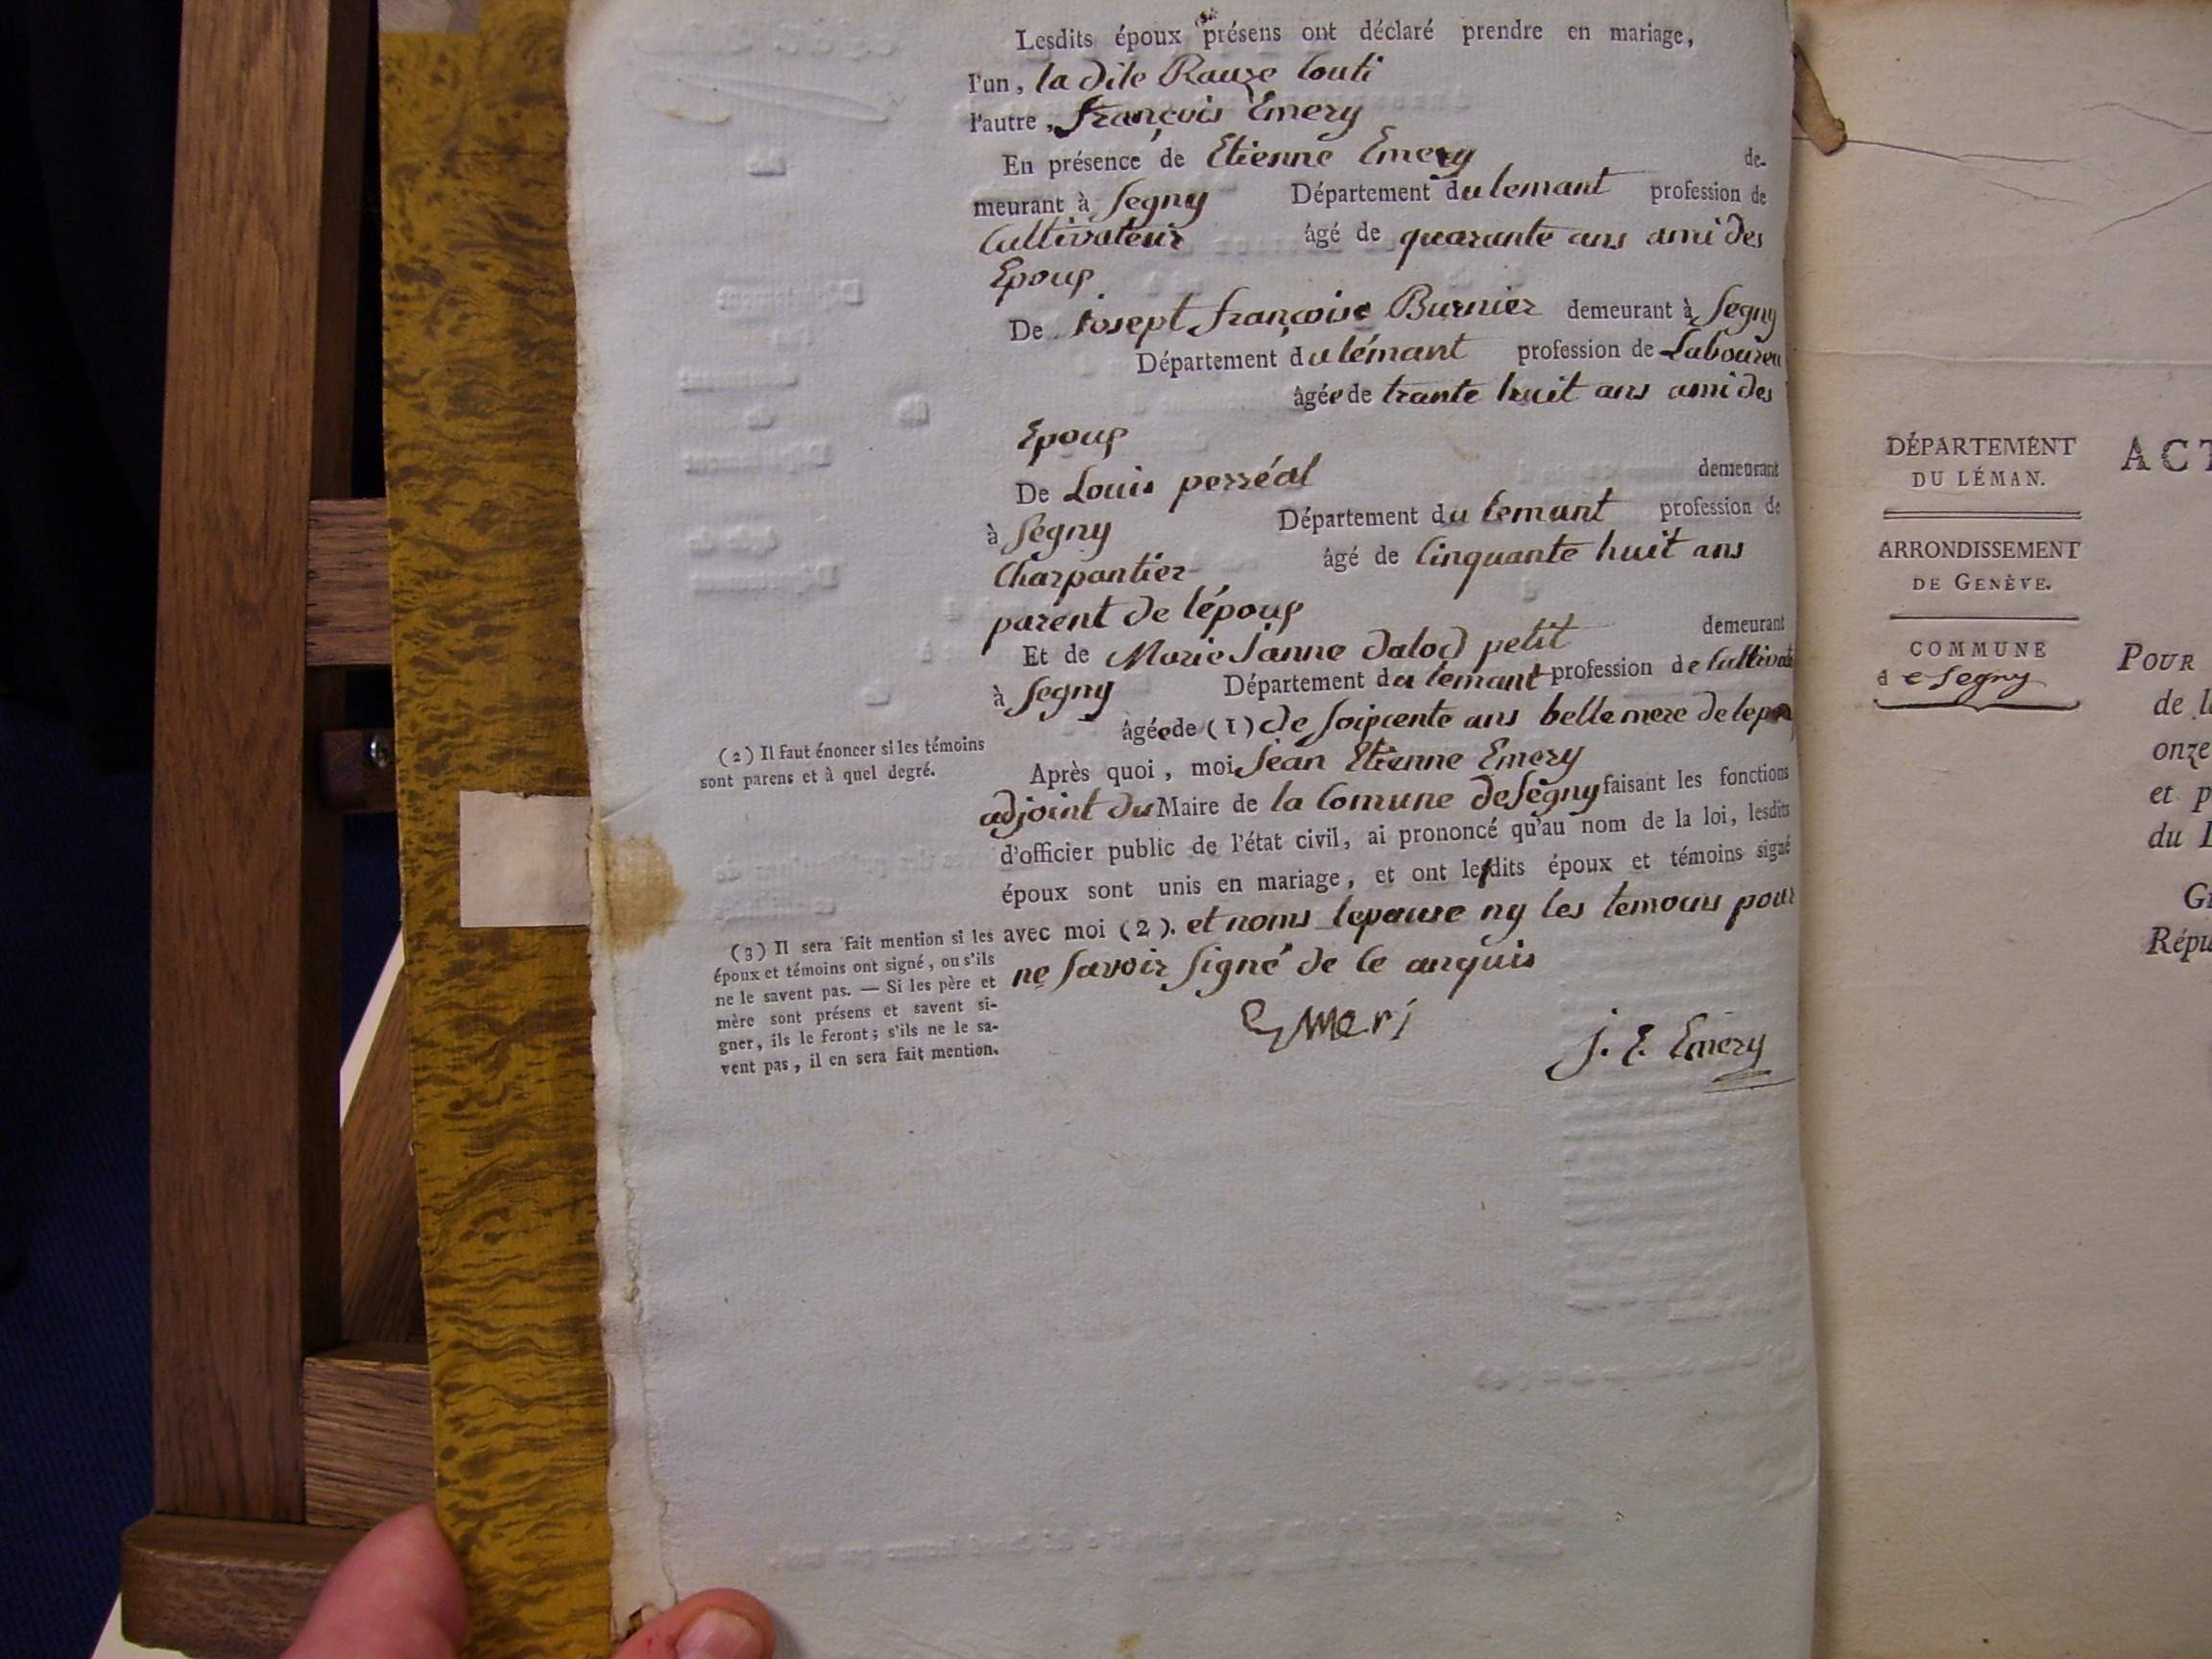 Lesdits époux présens ont déclaré prendre en mariage,
l'un, la dite Rauze Couti
l'autre, François Emery
En présence de Etienne Emery de-
meurant à Segny Département du lemant profession de
Cultivateur âgé de quarante ans ami des
Epoux
De Josept françoise Burnier demeurant à Segny
Département du lémant profession de Laboureu
âgée de trante huit ans ami des
Epoux
De Louis perréal demeurant
à Segny Département du lemant profession de
Charpantier âgé de Cinquante huit ans
parent de l'époux
Et de Marie Janne Dalod petit demeurant
à Segny Département du lemant profession de Cultivat
âgée de (1) de Soixcente ans belle mere de lepou
Après quoi, moi Jean Etienne Emery
adjoint du Maire de la Comune de Segny faisant les fonctions
d'officier public de l'état civil, ai prononcé qu'au nom de la loi, lesdits
époux sont unis en mariage, et ont lesdits époux et témoins signé
avec moi (2). et noms lepouse ny les temoins pour
ne Savoir Signé de ce anquis
Emeri
J. E. Emery
(2) Il faut énoncer si les témoins
sont parens et à quel degré.
(3) Il sera fait mention si les
époux et témoins ont signé, ou s'ils
ne le savent pas. — Si les père et
mère sont présens et savent si-
gner, ils le feront; s'ils ne le sa-
vent pas, il en sera fait mention.
DÉPARTEMENT
DU LÉMAN.
ARRONDISSEMENT
DE GENÈVE.
COMMUNE
de Segny
ACT
POUR
de l
onze
et p
du L
G
Répu